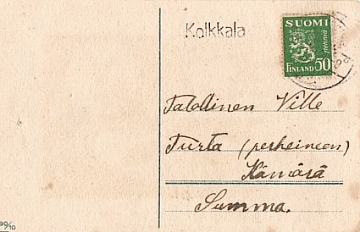 Kolkkala
SUOMI
FINLAND 50
Talollinen Ville
Turta (perheineen)
Hämärä
Summa.